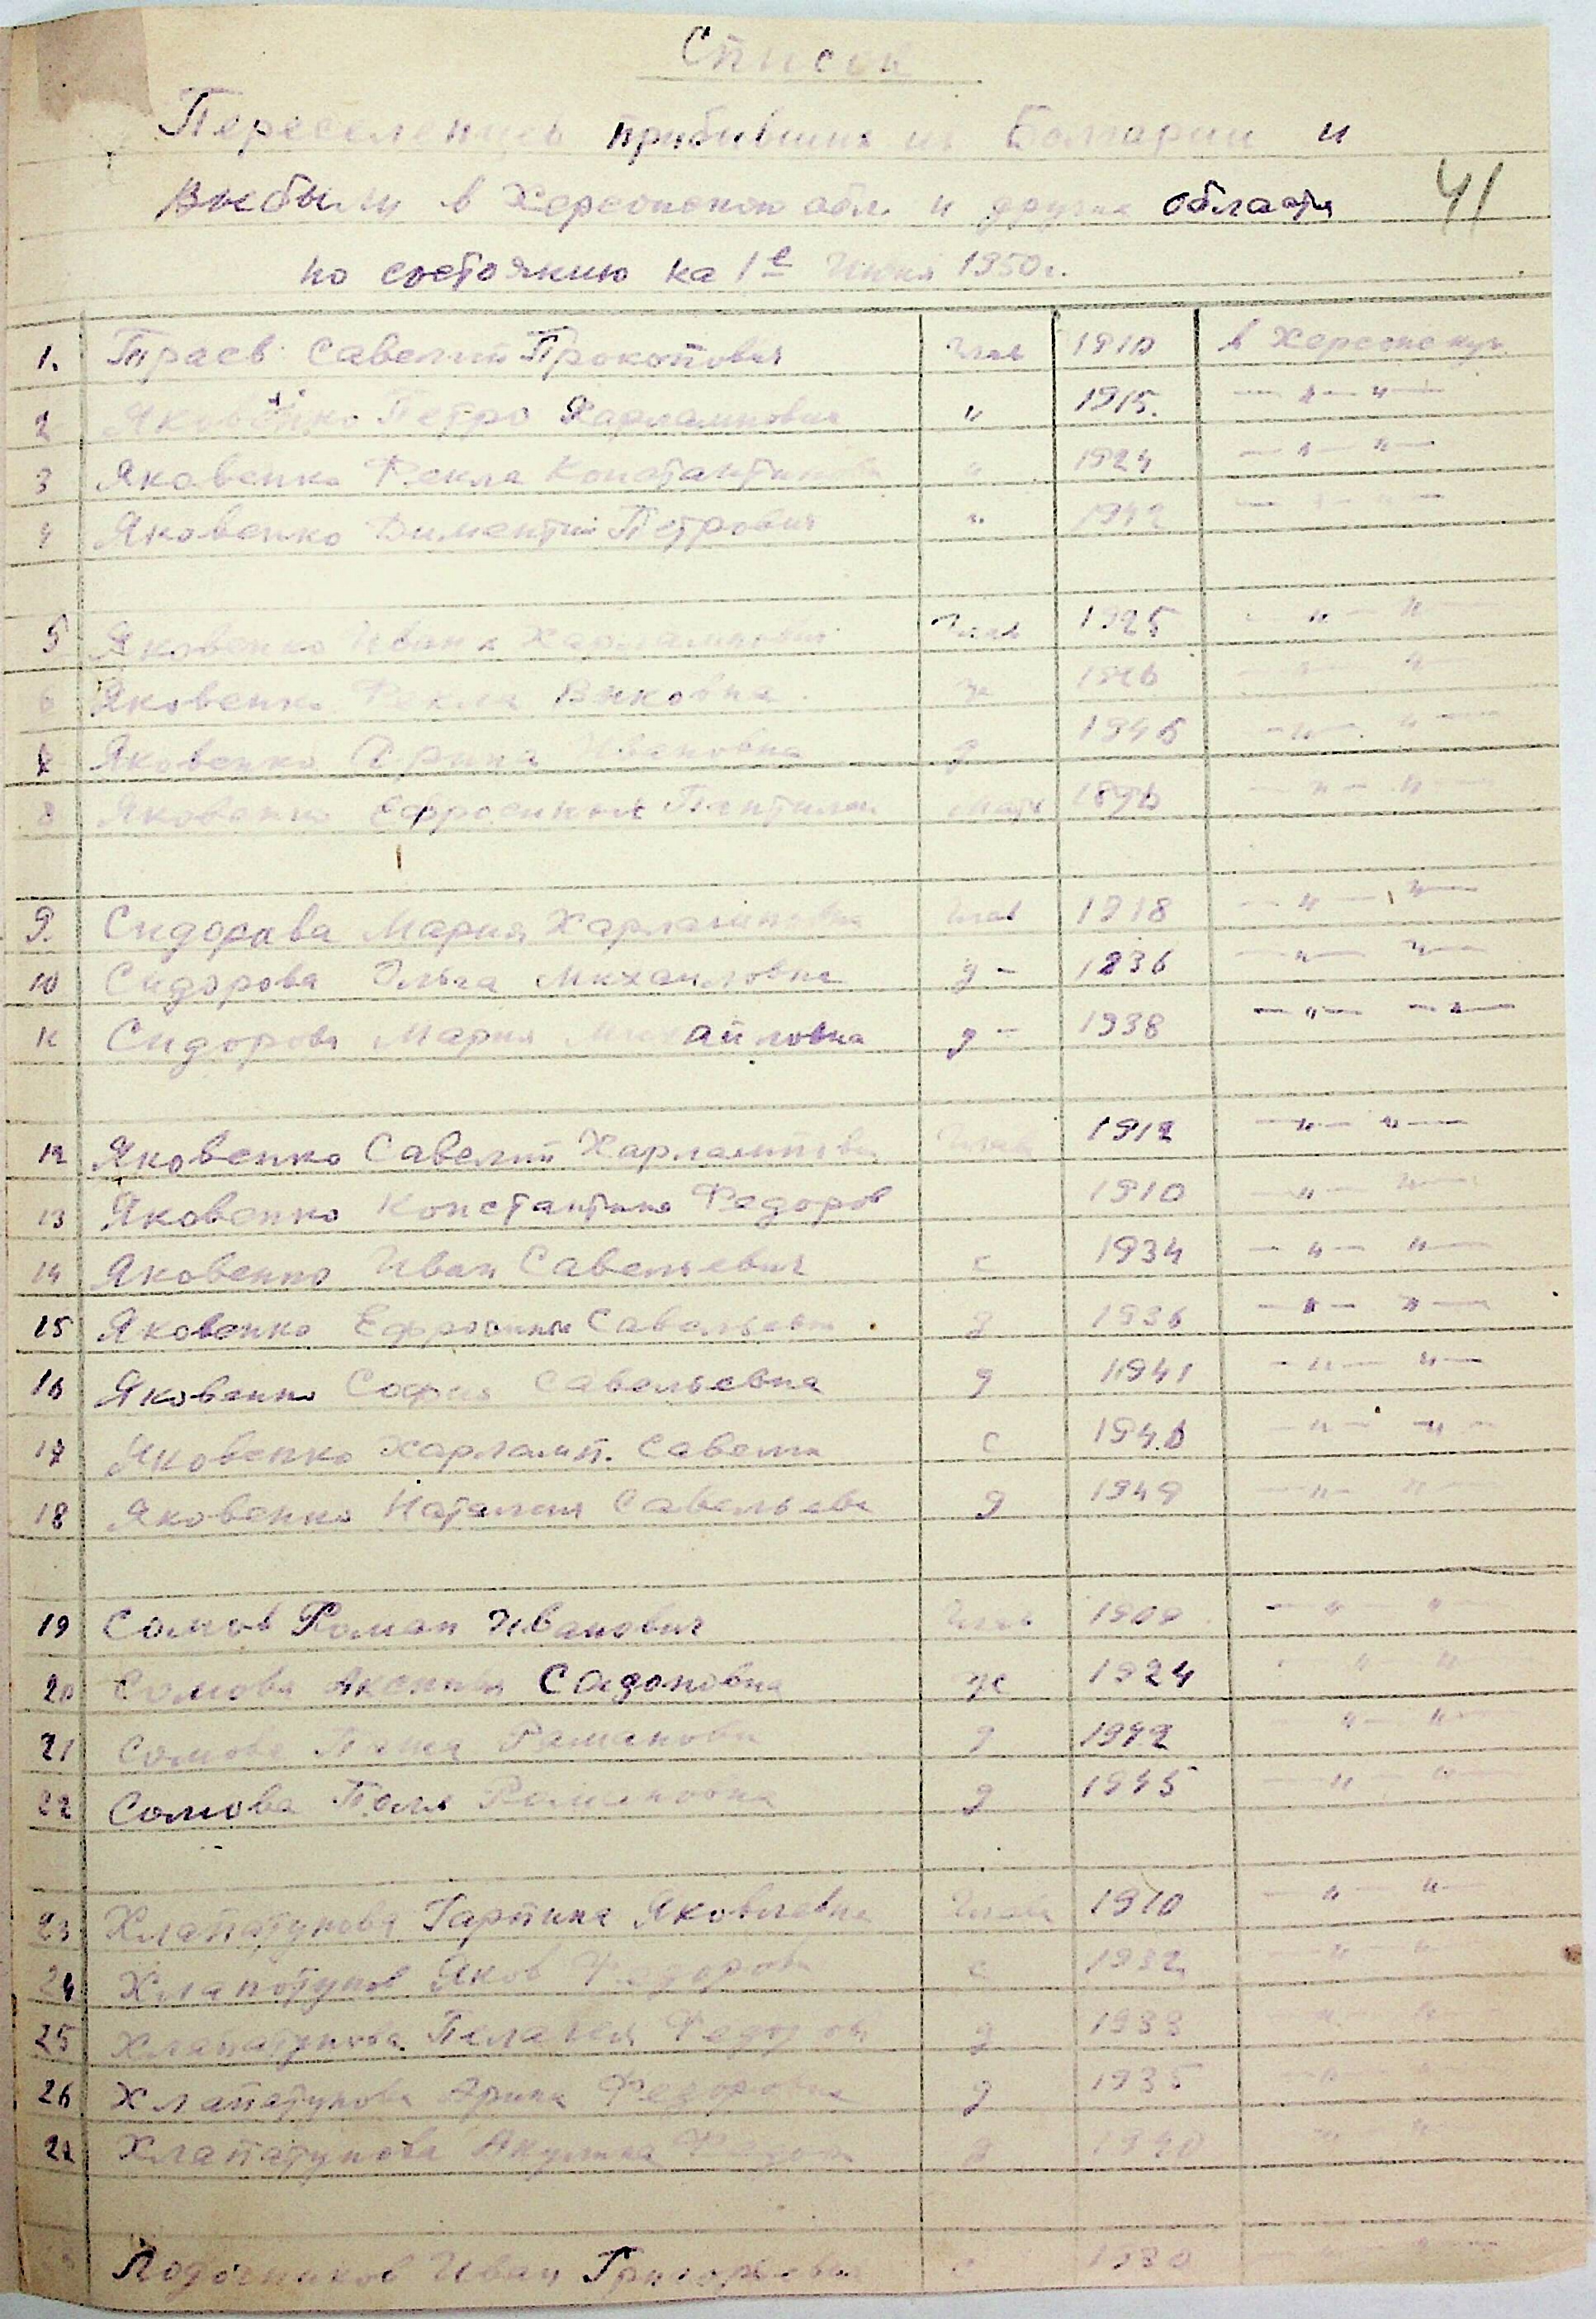 Список
Переселенцев прибивших из Болгарии и
выбылу в Херсонской обл. и другие области 41
по состоянию на 1е Июня 1950 г.
1. Траев Савелий Прокопович Глав 1910 в Херсонскую
2 Яковенко Петро Харлампович " 1915. — " — " —
3 Яковенко Фекла Константинова " 1924 — " — " —
4 Яковенко Диментий Петрович " 1942 — " — " —
5 Яковенко Иван Харлампович Глав 1925 — " — " —
6 Яковенко Фекла Вуковна ж — " — " —
7 Яковенко Ивановна д 1946 — " — " —
8 Яковенко Ефросиния мать — " — " —
9. Сидорова Мария Харламповна Глав 1918 — " — " —
10 Сидорова Ольга Михаиловна д - 1936 — " — " —
11 Сидорова Мария Михайловна д - 1938 — " — " —
12 Яковенко Савелий Харлампови Глав 1912 — " — " —
13 Яковенко Константина Федоров 1910 — " — " —
14 Яковенко Иван Савельевич с 1934 — " — " —
15 Яковенко Ефросиния Савельевн д 1936 — " — " —
16 Яковенко София Савельевна д 1941 — " — " —
17 Яковенко Харламп. Савели с — " — " —
18 Яковенко Наталия Савельева д 1949 — " — " —
19 Сомов Роман Иванович Глав 1909 — " — " —
20 Сомова Аксиния Садоновна ж 1924 " "
21 Сомова Романовн д 1942 — " — " —
22 Сомова Поля Романовна д 1945 — " — " —
23 Хлапатунова Гарпина Яковлевна Глава 1910 — " — " —
24 Хлапотунов Яков Федоров с 1932 — " — " —
25 Хлапатунова Пелагея Федоров д 1933 " "
26 Хлапатунова Арина Федоровна д 1935 — " — "
27 Хлапатунова Акулина Федор д 1940 — " — "
Лодочников Иван Григорьевич с 1930 — " —